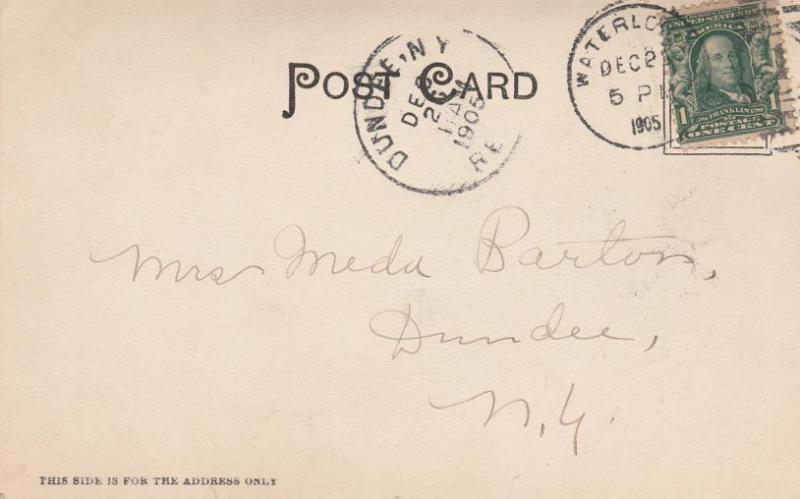 POST CARD
DUNDEE, NY
DEC
1905
WATERLO
DEC 2
5 P
1905
UNITED STATES OF AMERICA
FRANKLIN
1 POSTAGE 1
ONE CENT
Mrs Meda Barton,
Dundee,
N.Y.
THIS SIDE IS FOR THE ADDRESS ONLY